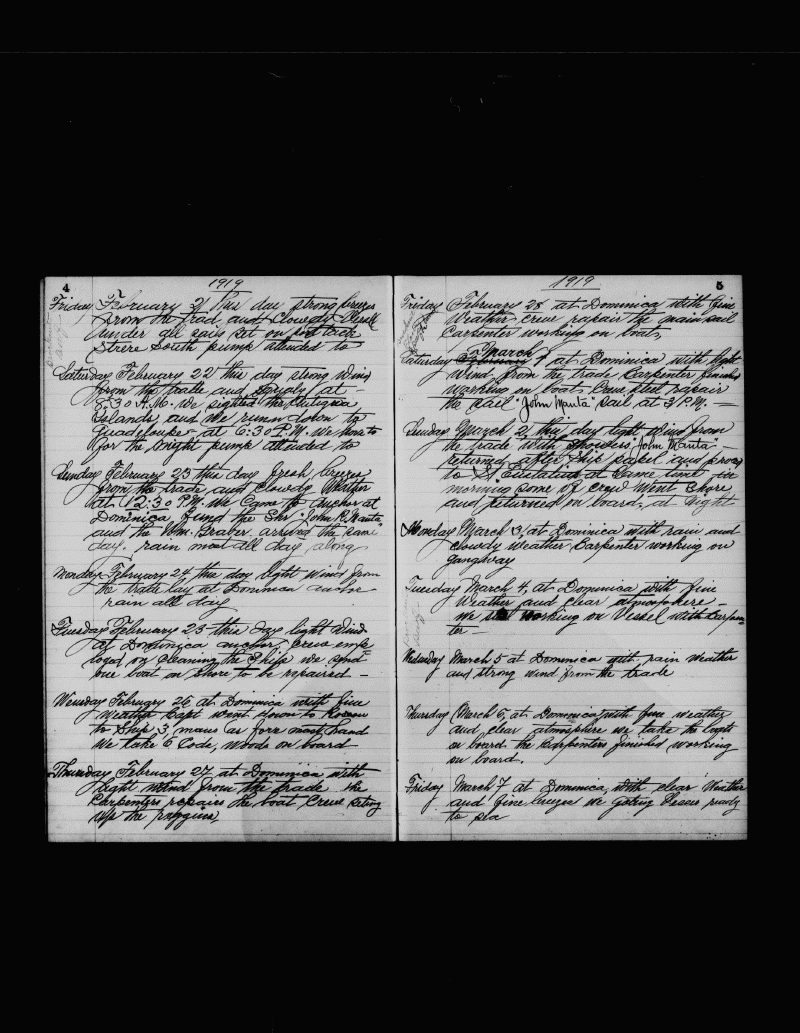 4
1919
Friday February 21 this day strong breeze
from the trad and Clowdy Vessell
under all sails set on port tack
Strere South pump attended to
Saturday February 22 this day strong Wind
from the trade and
8:30 A.M. We sighted the Antigua
Islands, and we runn down to
Guadeloupe at 6:30 P.M. We hove to
for the night pump attended to
Sunday February 23 this day fresh breeze
from the trade and Clowdy Weather
at 12:30 P.M. we Came to Anchor at
Dominica find the Shr "John R. Manta"
and the Wm. Graber arrived the same
day. rain most all day along
Monday February 24 this day light wind from
the trade lay at Dominica anchor
rain all day
Tuesday February 25 this day light wind
at Dominica anchor, Crew emp
loyed on Cleaning the Ship we send
one boat on shore to be repaired –
Wensday February 26 at Dominica with fine
weather Capt went down to
to Ship 3, mans as forr mast hand
We take 6 Code, woods on board
Thursday February 27 at Dominica with
light wind from the trade the
Carpenters repairs the boat Crew seting
up the
5
1919
Friday February 28 at Dominica with fine
Weather crew repair the main sail
Carpenter working on boats,
Saturday March 1 at Dominica with light
wind from the trade Carpenter finished
working on boat, Crew steel repair
the sail "John Manta" sail at 3 P.M. —
Sunday March 2 this day light wind from
the trade with showers "John Manta" –
returned after ship papel and proced
to St Estatia at same time in
morning some of crew went shore
and returned on board, at night
Monday March 3, at Dominica with rain and
clowdy weather Carpenter working on
gangway
Tuesday March 4, at Dominica with fine
Weather and clear atmosphere –
we still working on Vessel with Carpen
ter –
Wednesday March 5 at Dominica with rain weather
and strong wind from the trade
Thursday March 6, at Dominica with fine weather
and clear atmosphere we take the boats
on board the Carpenters finished working
on board.
Friday March 7 at Dominica, with clear Weather
and fine breeze we geting Vessel ready
to sea